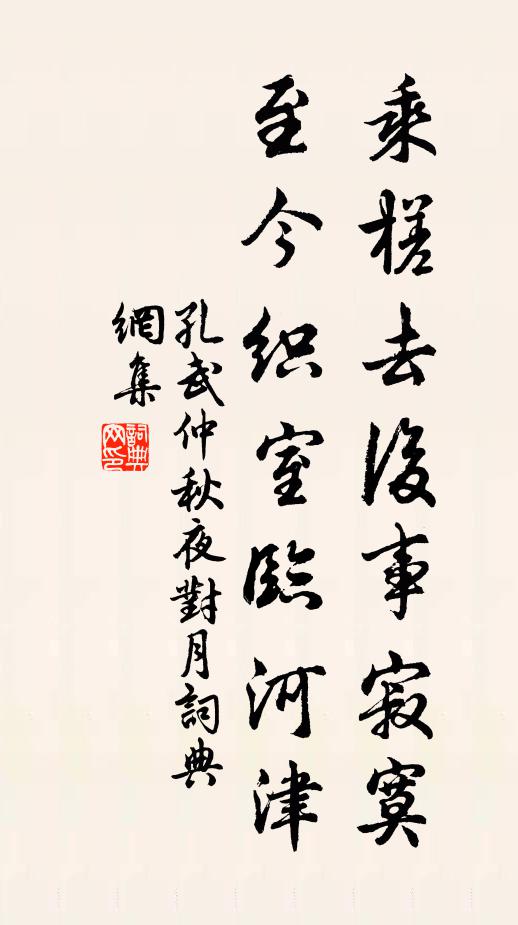 乘槎去後事寂寞
至今織室臨河津
孔武仲秋夜對月詞典
網集
詞典網印